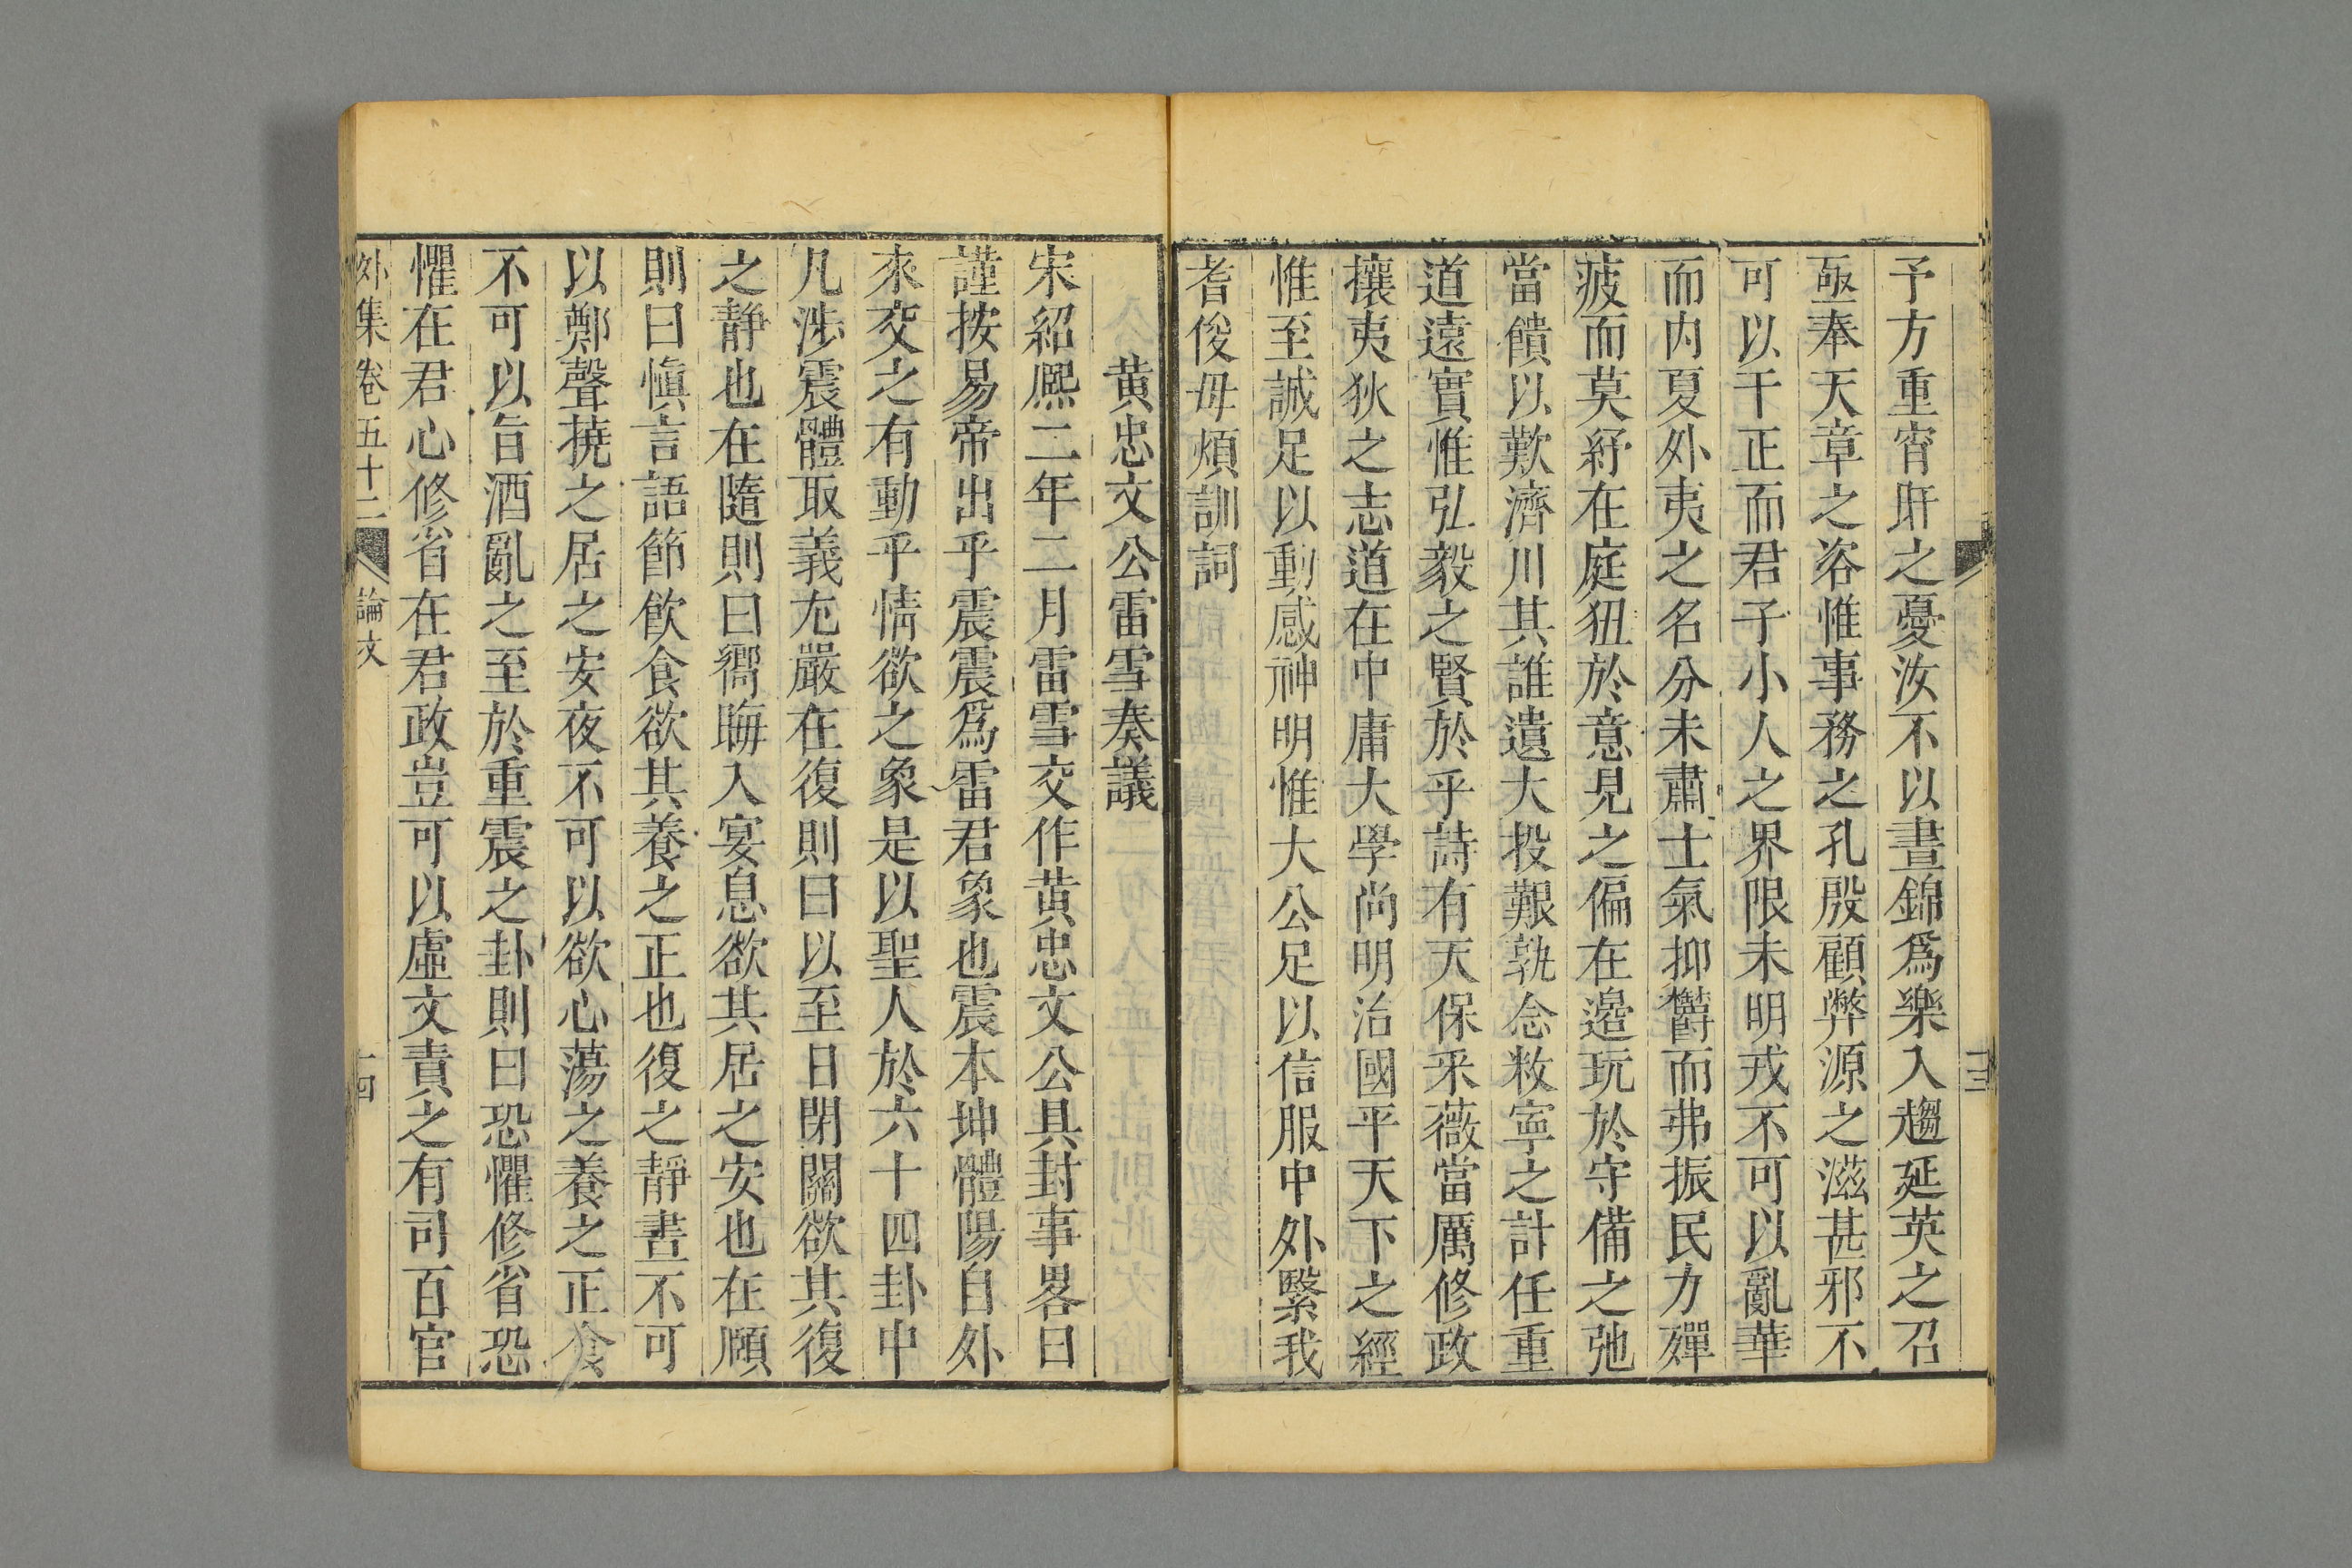 予方重宵旰之憂汝不以晝錦爲樂入趨延英之召
亟奉天章之咨惟事務之孔殷顧弊源之滋甚邪不
可以干正而君子小人之界限未明戎不可以亂華
而内夏外夷之名分未肅士氣抑欝而弗振民力殫
疲而莫紓在庭狃於意見之偏在邉玩於守備之弛
當饋以歎濟川其誰遺大投艱孰念敉寧之計任重
道遠實惟弘毅之賢於乎詩有天保采薇當厲修政
攘夷狄之志道在中庸大學尚明治國平天下之經
惟至誠足以動感神明惟大公足以信服中外緊我
耆俊毋煩訓詞
黄忠文公雷雪奏議
宋紹熈二年二月雷雪交作黄忠文公具封事畧曰
謹按易帝出乎震震爲雷君象也震本坤體陽自外
來交之有動乎情欲之象是以聖人於六十四卦中
凡涉震體取義尤嚴在復則曰以至日閉關欲其復
之靜也在隨則曰嚮晦入宴息欲其居之安也在頤
則曰愼言語節飲食欲其養之正也復之靜晝不可
以鄭聲撓之居之安夜不可以欲心蕩之養之正食
不可以旨酒亂之至於重震之卦則曰恐懼修省恐
懼在君心修省在君政豈可以虛文責之有司百官
外集卷五十二 論文 十四